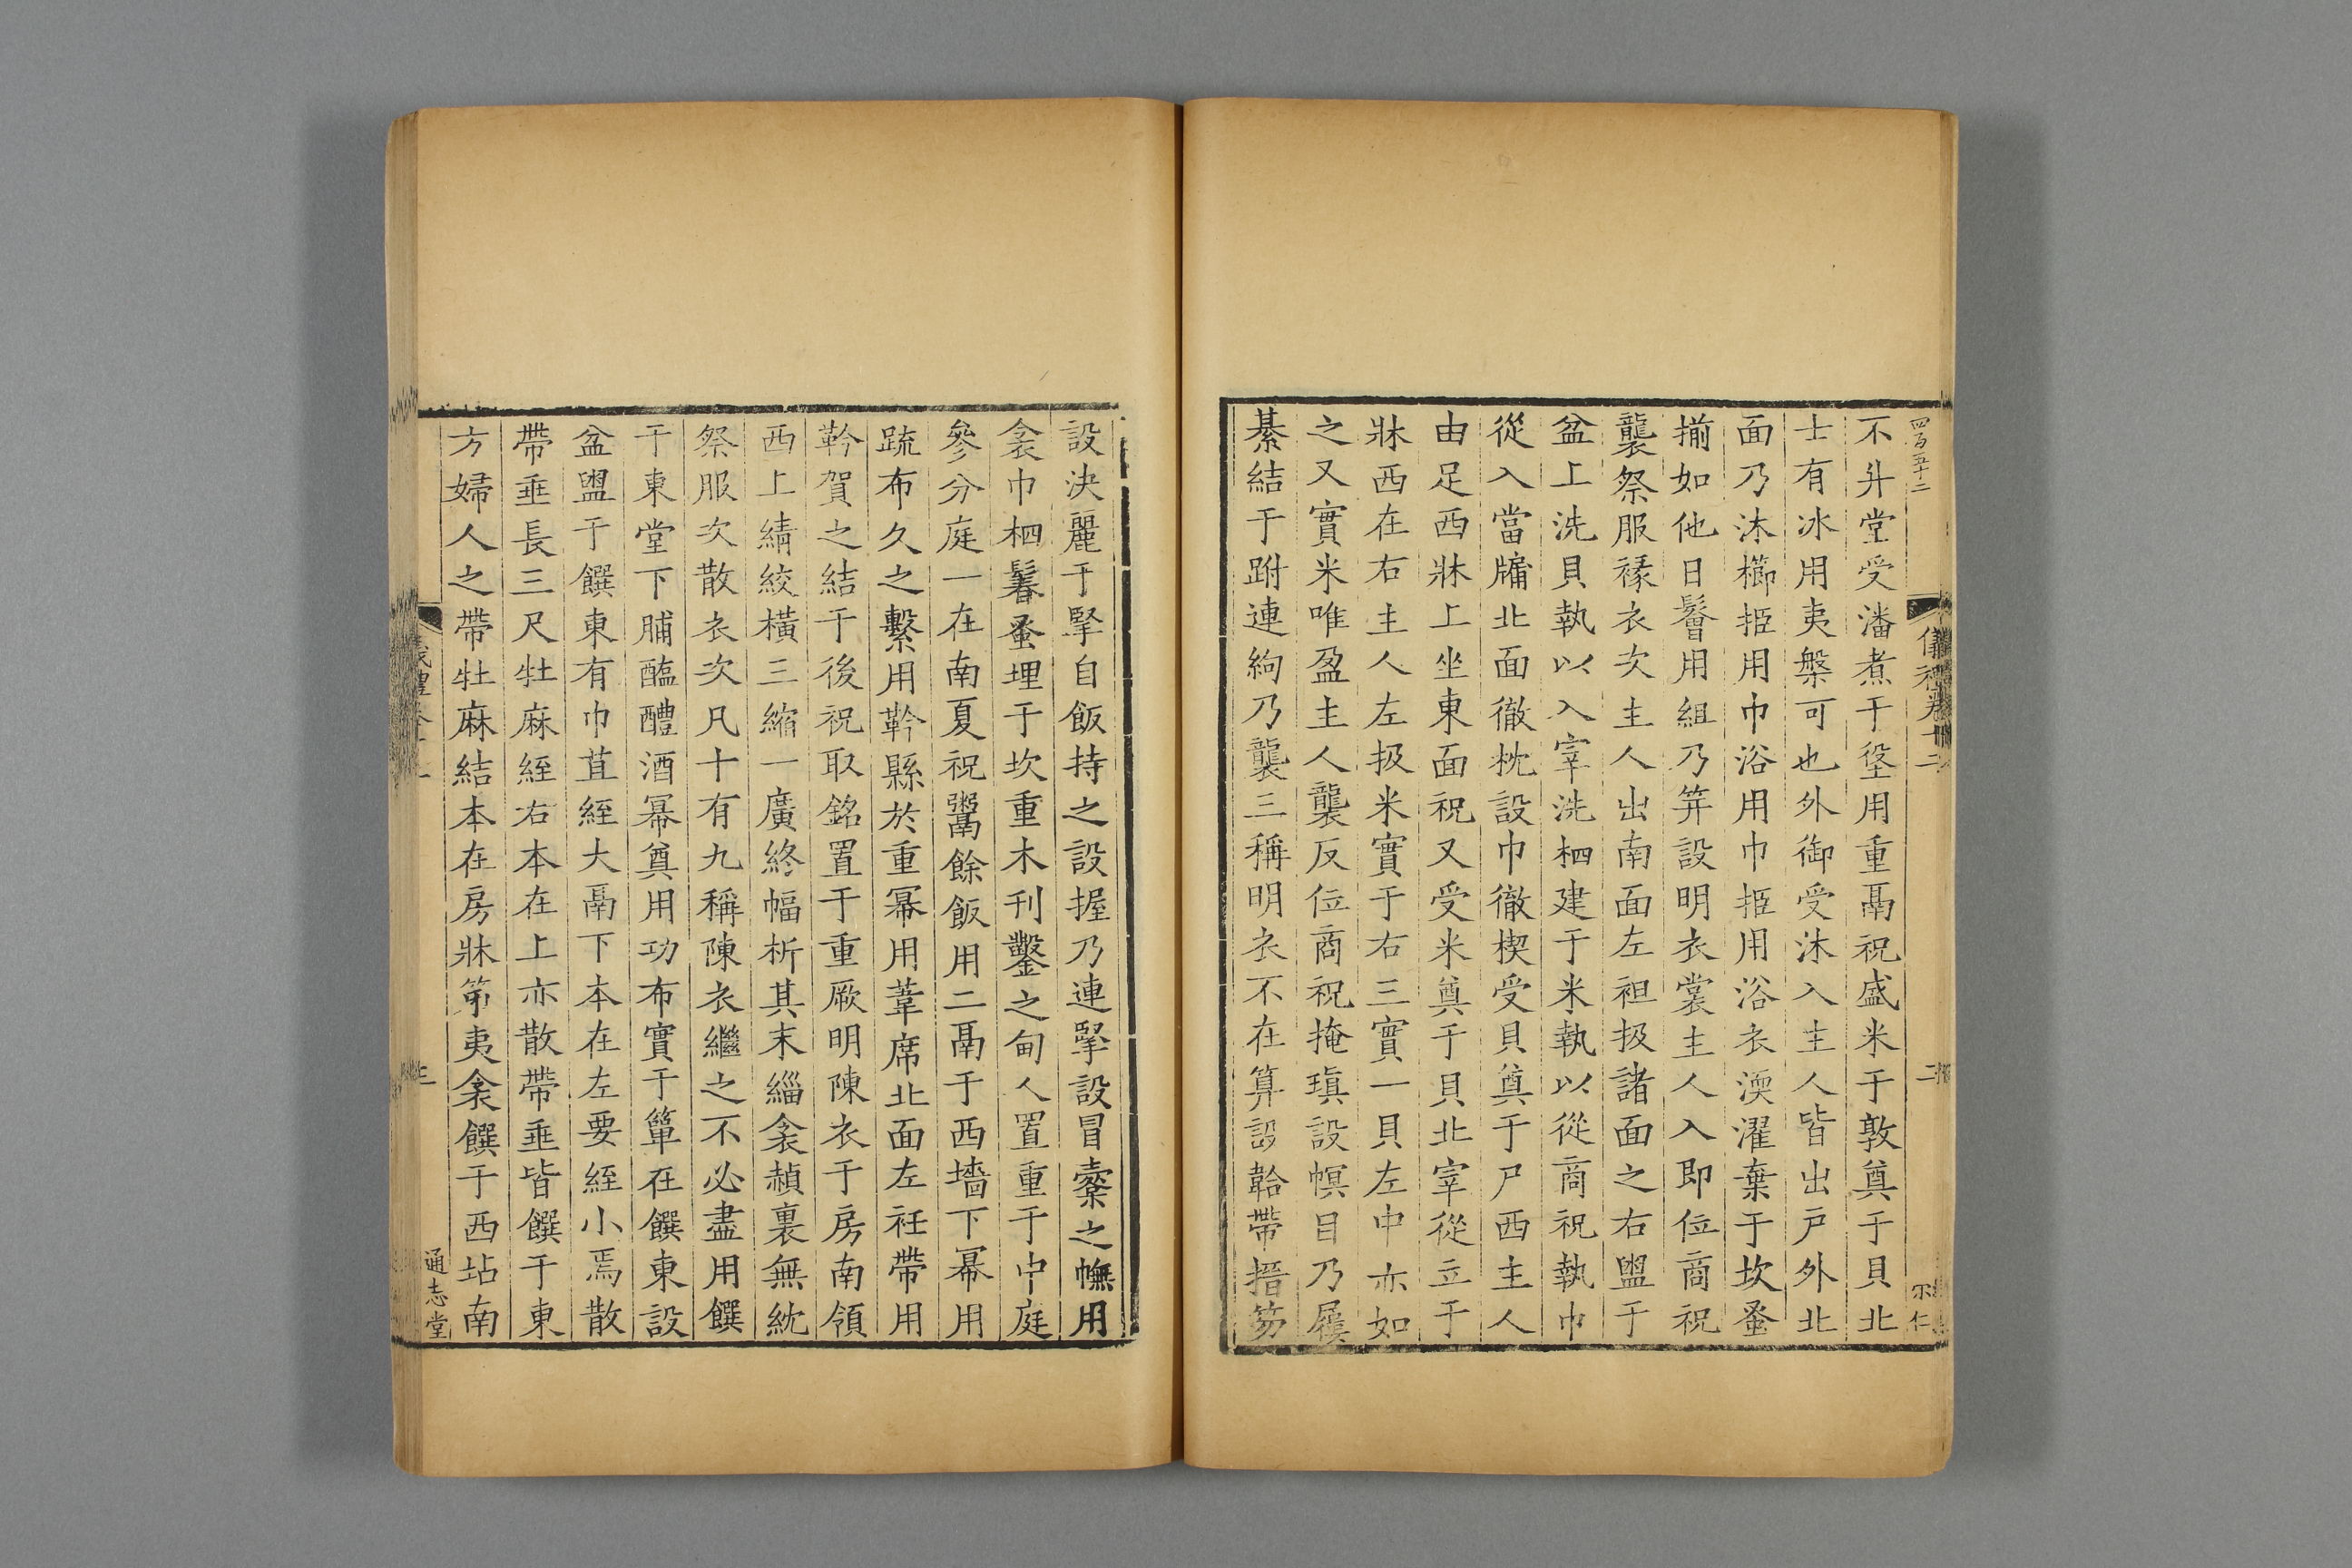 四百五十二
儀禮卷十二
二
不升堂受潘煮于垼用重鬲祝盛米于敦奠于貝北
士有冰用夷槃可也外御受沐入主人皆出戶外北
面乃沐櫛挋用巾浴用巾挋用浴衣渜濯棄于坎蚤
揃如他日鬠用組乃筓設明衣裳主人入即位商祝
襲祭服褖衣次主人出南面左袒扱諸面之右盥于
盆上洗貝執以入宰洗柶建于米執以從商祝執巾
從入當牖北面徹枕設巾徹楔受貝奠于尸西主人
由足西牀上坐東面祝又受米奠于貝北宰從立于
牀西在右主人左扱米實于右三實一貝左中亦如
之又實米唯盈主人襲反位商祝掩瑱設幎目乃屨
綦結于跗連絇乃襲三稱明衣不在算設韐帶搢笏
設決麗于掔自飯持之設握乃連掔設冒櫜之幠用
衾巾柶鬊蚤埋于坎重木刊鑿之甸人置重于中庭
參分庭一在南夏祝鬻餘飯用二鬲于西墻下冪用
疏布久之繫用靲縣於重冪用葦席北面左衽帶用
靲賀之結于後祝取銘置于重厥明陳衣于房南領
西上綪絞橫三縮一廣終幅析其末緇衾赬裏無紞
祭服次散衣次凡十有九稱陳衣繼之不必盡用饌
于東堂下脯醢醴酒冪奠用功布實于簞在饌東設
盆盥于饌東有巾苴絰大鬲下本在左要絰小焉散
帶垂長三尺牡麻絰右本在上亦散帶垂皆饌于東
方婦人之帶牡麻結本在房牀笫夷衾饌于西坫南
通志堂